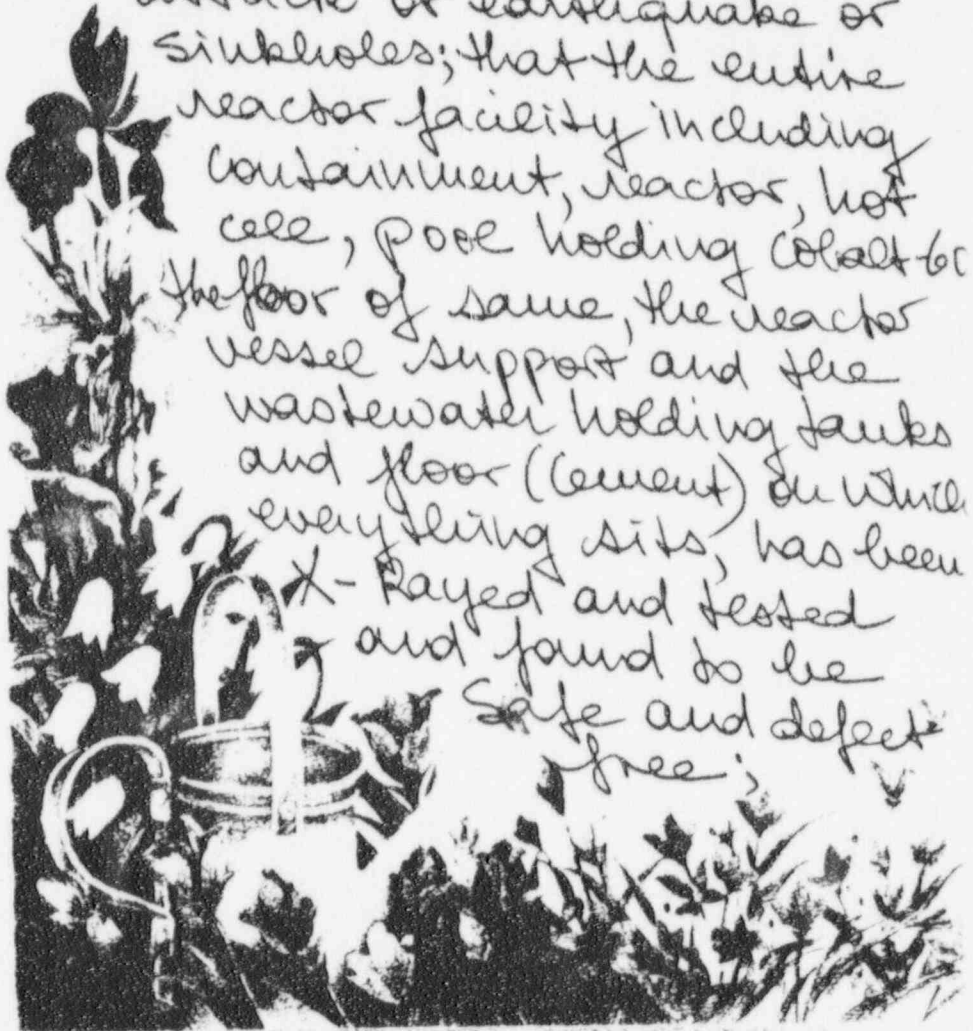 of earthquake or
sinkholes; that the entire
reactor facility including
containment, reactor, hot
cell, pool holding Cobalt-60
the floor of same, the reactor
vessel support and the
wastewater holding tanks
and floor (cement) on which
everything sits, has been
X-Rayed and tested
and found to be
Safe and defect
free;